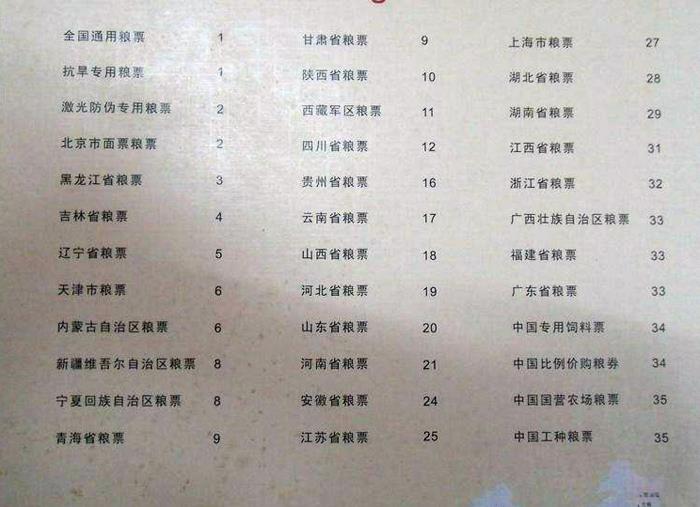 全国通用粮票 1
抗旱专用粮票 1
激光防伪专用粮票 2
北京市面票粮票 2
黑龙江省粮票 3
吉林省粮票 4
辽宁省粮票 5
天津市粮票 6
内蒙古自治区粮票 6
新疆维吾尔自治区粮票 8
宁夏回族自治区粮票 8
青海省粮票 9
甘肃省粮票 9
陕西省粮票 10
西藏军区粮票 11
四川省粮票 12
贵州省粮票 16
云南省粮票 17
山西省粮票 18
河北省粮票 19
山东省粮票 20
河南省粮票 21
安徽省粮票 24
江苏省粮票 25
上海市粮票 27
湖北省粮票 28
湖南省粮票 29
江西省粮票 31
浙江省粮票 32
广西壮族自治区粮票 33
福建省粮票 33
广东省粮票 33
中国专用饲料票 34
中国比例价购粮券 34
中国国营农场粮票 35
中国工种粮票 35